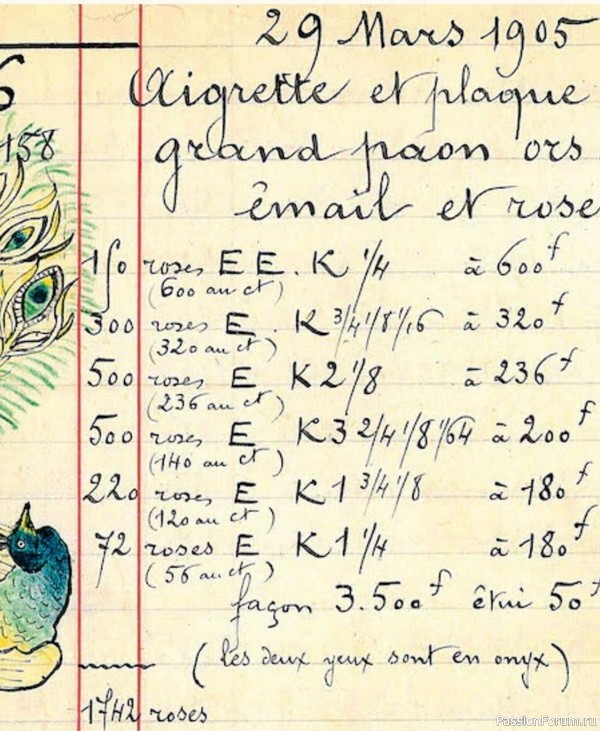 29 Mars 1905
Aigrette et plaque
158
grand paon ors
êmail et rose
150 roses E E. K 1/4 à 600f
(600 au ct)
300 roses E. K 3/4 1/8 1/16 à 320f
(320 au ct)
500 roses E K 2 1/8 à 236f
(236 au ct)
500 roses E K 3 2/4 1/8 1/64 à 200f
(140 au ct)
220 roses E K 1 3/4 1/8 à 180f
(120 au ct)
72 roses E K 1 1/4 à 180f
(56 au ct)
façon 3.500f êtui 50f
(les deux yeux sont en onyx)
1742 roses
PassionForum.ru